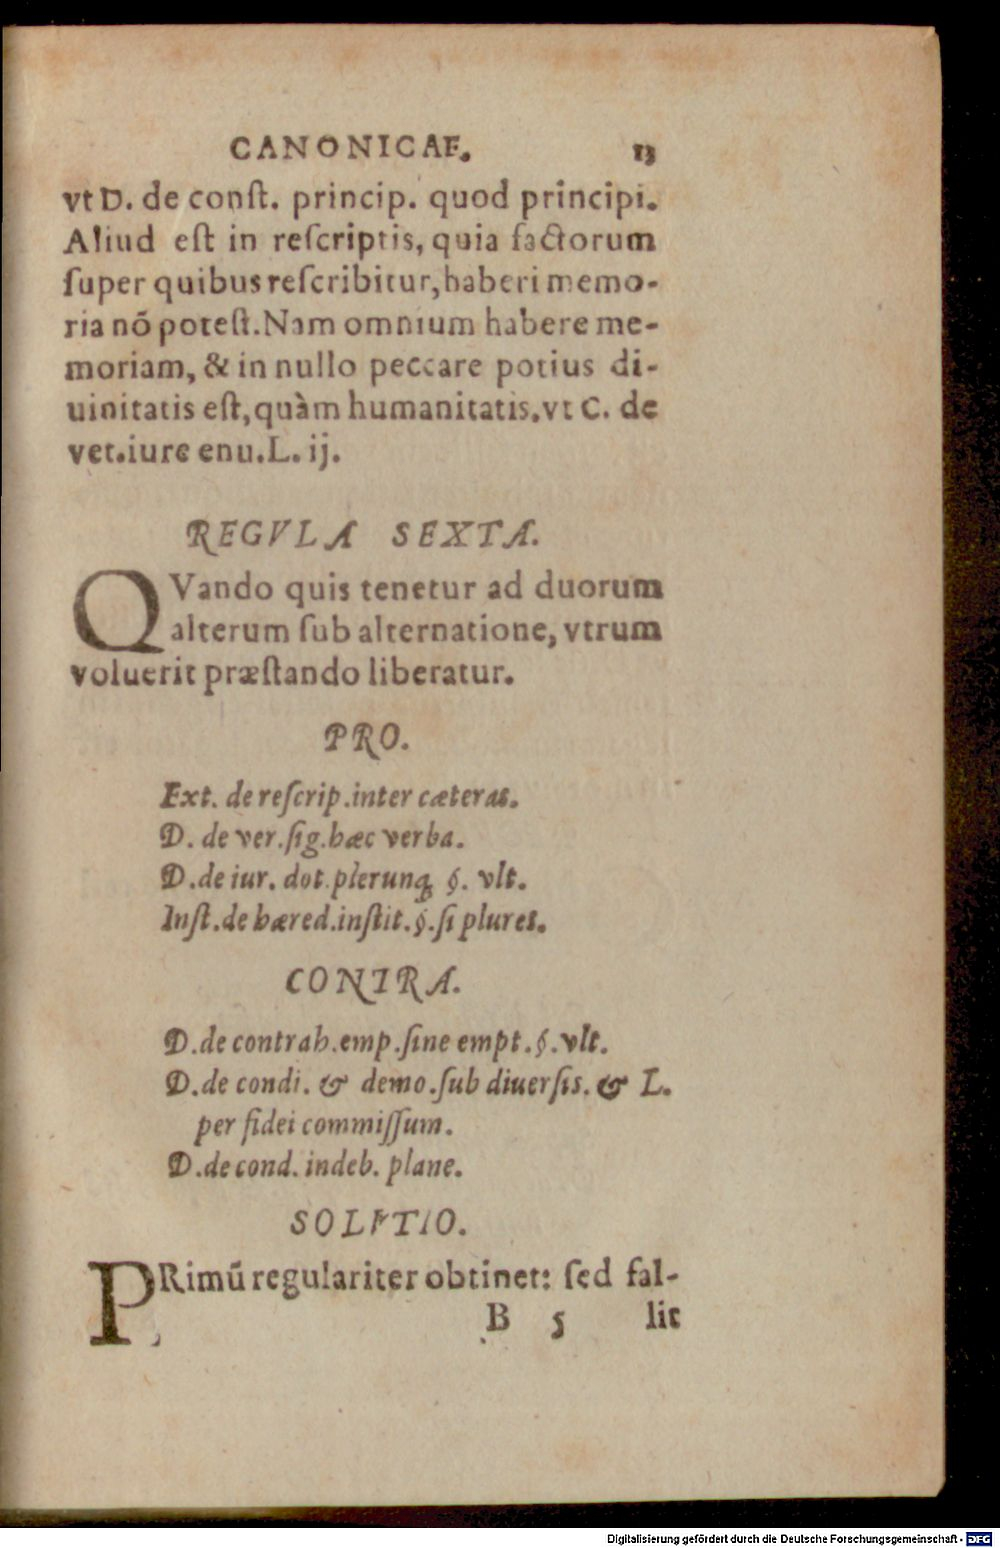 CANONICAE. 13
vt D. de conſt. princip. quod principi.
Aliud eſt in reſcriptis, quia factorum
ſuper quibus reſcribitur, haberi memo-
ria nõ poteſt. Nam omnium habere me-
moriam, & in nullo peccare potius di-
uinitatis eſt, quàm humanitatis. vt C. de
vet. iure enu. L. ij.
REGVLA SEXTA.
QVando quis tenetur ad duorum
alterum ſub alternatione, vtrum
voluerit præſtando liberatur.
PRO.
Ext. de reſcrip. inter cæteras.
D. de ver. ſig. hæc verba.
D. de iur. dot. plerunq; §. vlt.
Inſt. de hæred. inſtit. §. ſi plures.
CONTRA.
D. de contrah. emp. ſine empt. §. vlt.
D. de condi. & demo. ſub diuerſis. & L.
per fidei commiſſum.
D. de cond. indeb. plane.
SOLVTIO.
PRimũ regulariter obtinet: ſed fal-
B 5 lit
Digitalisierung gefördert durch die Deutsche Forschungsgemeinschaft - DFG